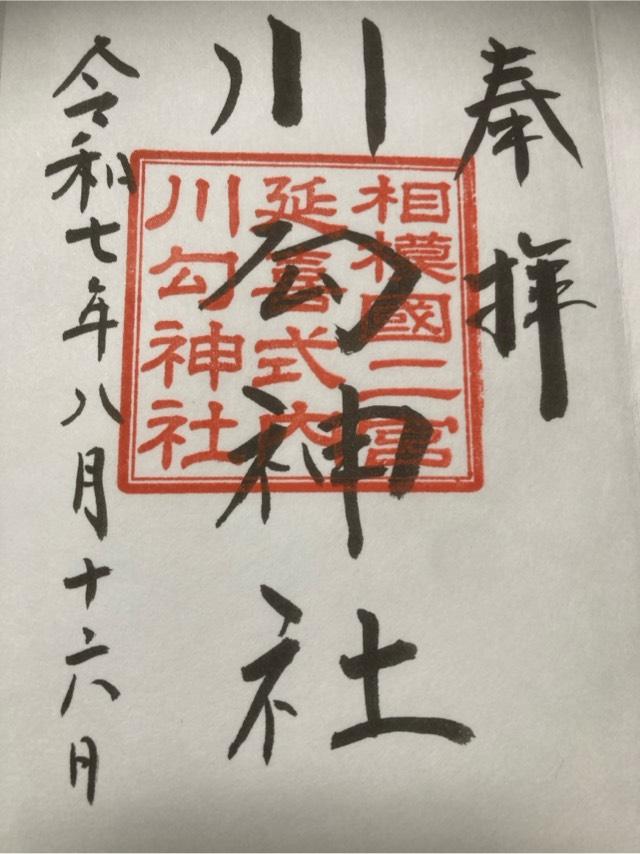 奉拝
相模國二宮
延喜式内
川勾神社
川勾神社
令和七年八月十六日